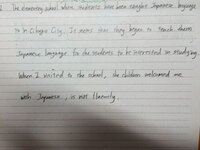 The elementary school where students have been taught Japanese language
is in Cilegon City. It means that they began to teach them
Japanese language for the students to be interested in studying.
When I visited to the school, the children welcomed me
with Japanese, is not fluently.